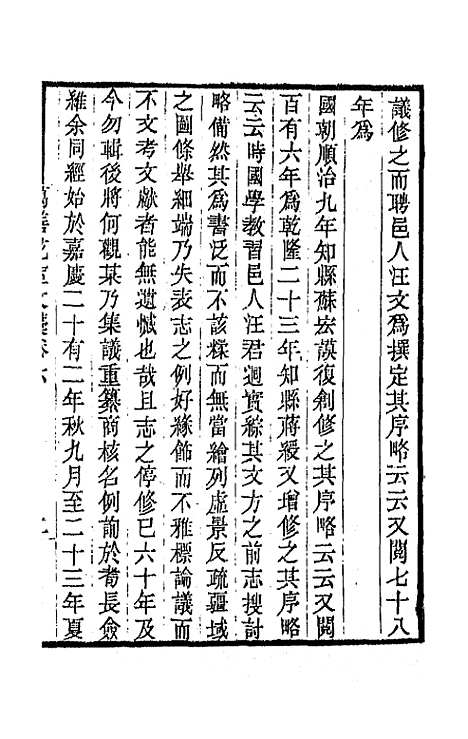 議修之而聘邑人汪文爲撰定其序略云云又閱七十八
年爲
國朝順治九年知縣蘇宏謨復創修之其序略云云又閱
百有六年爲乾隆二十三年知縣蔣綬又增修之其序略
云云時國學教習邑人汪君迴實綜其文方之前志搜討
略備然其爲書泛而不該糅而無當繪列虛景反疏疆域
之圖條舉細端乃失表志之例好緣飾而不雅標論議而
不文考文獻者能無遺憾也哉且志之停修已六十年及
今勿輯後將何觀某乃集議重纂商核名例諭於耆長僉
維余同經始於嘉慶二十有二年秋九月至二十三年夏
萬善花室文藁卷六